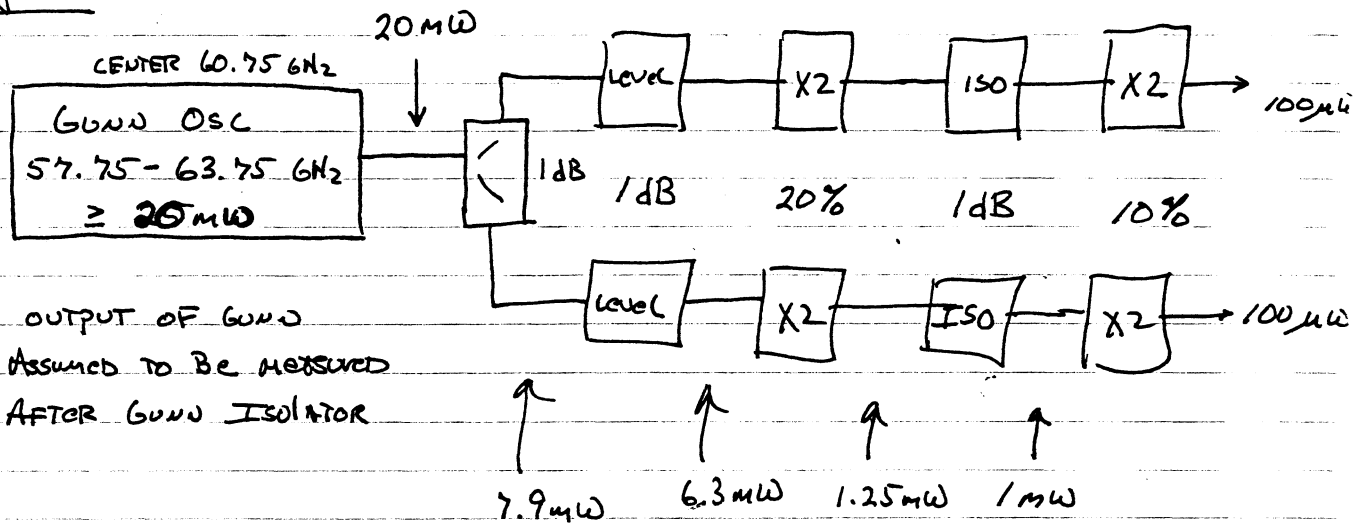 20 mW
CENTER 60.75 GHz
GUNN OSC
57.75 - 63.75 GHz
≥ 20 mW
1dB
LEVEL
X2
ISO
X2
100 μW
1dB
20%
1dB
10%
LEVEL
X2
ISO
X2
100 μW
OUTPUT OF GUNN
ASSUMED TO BE MEASURED
AFTER GUNN ISOLATOR
7.9 mW
6.3 mW
1.25 mW
1 mW